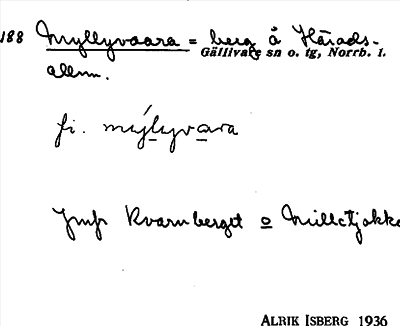 188 Myllyvaara = berg å Härads-
Gällivare sn o. tg, Norrb. l.
allm.
fi. mýlyvara
Jmfr Kvarnberget o Milletjokko
ALRIK ISBERG 1936